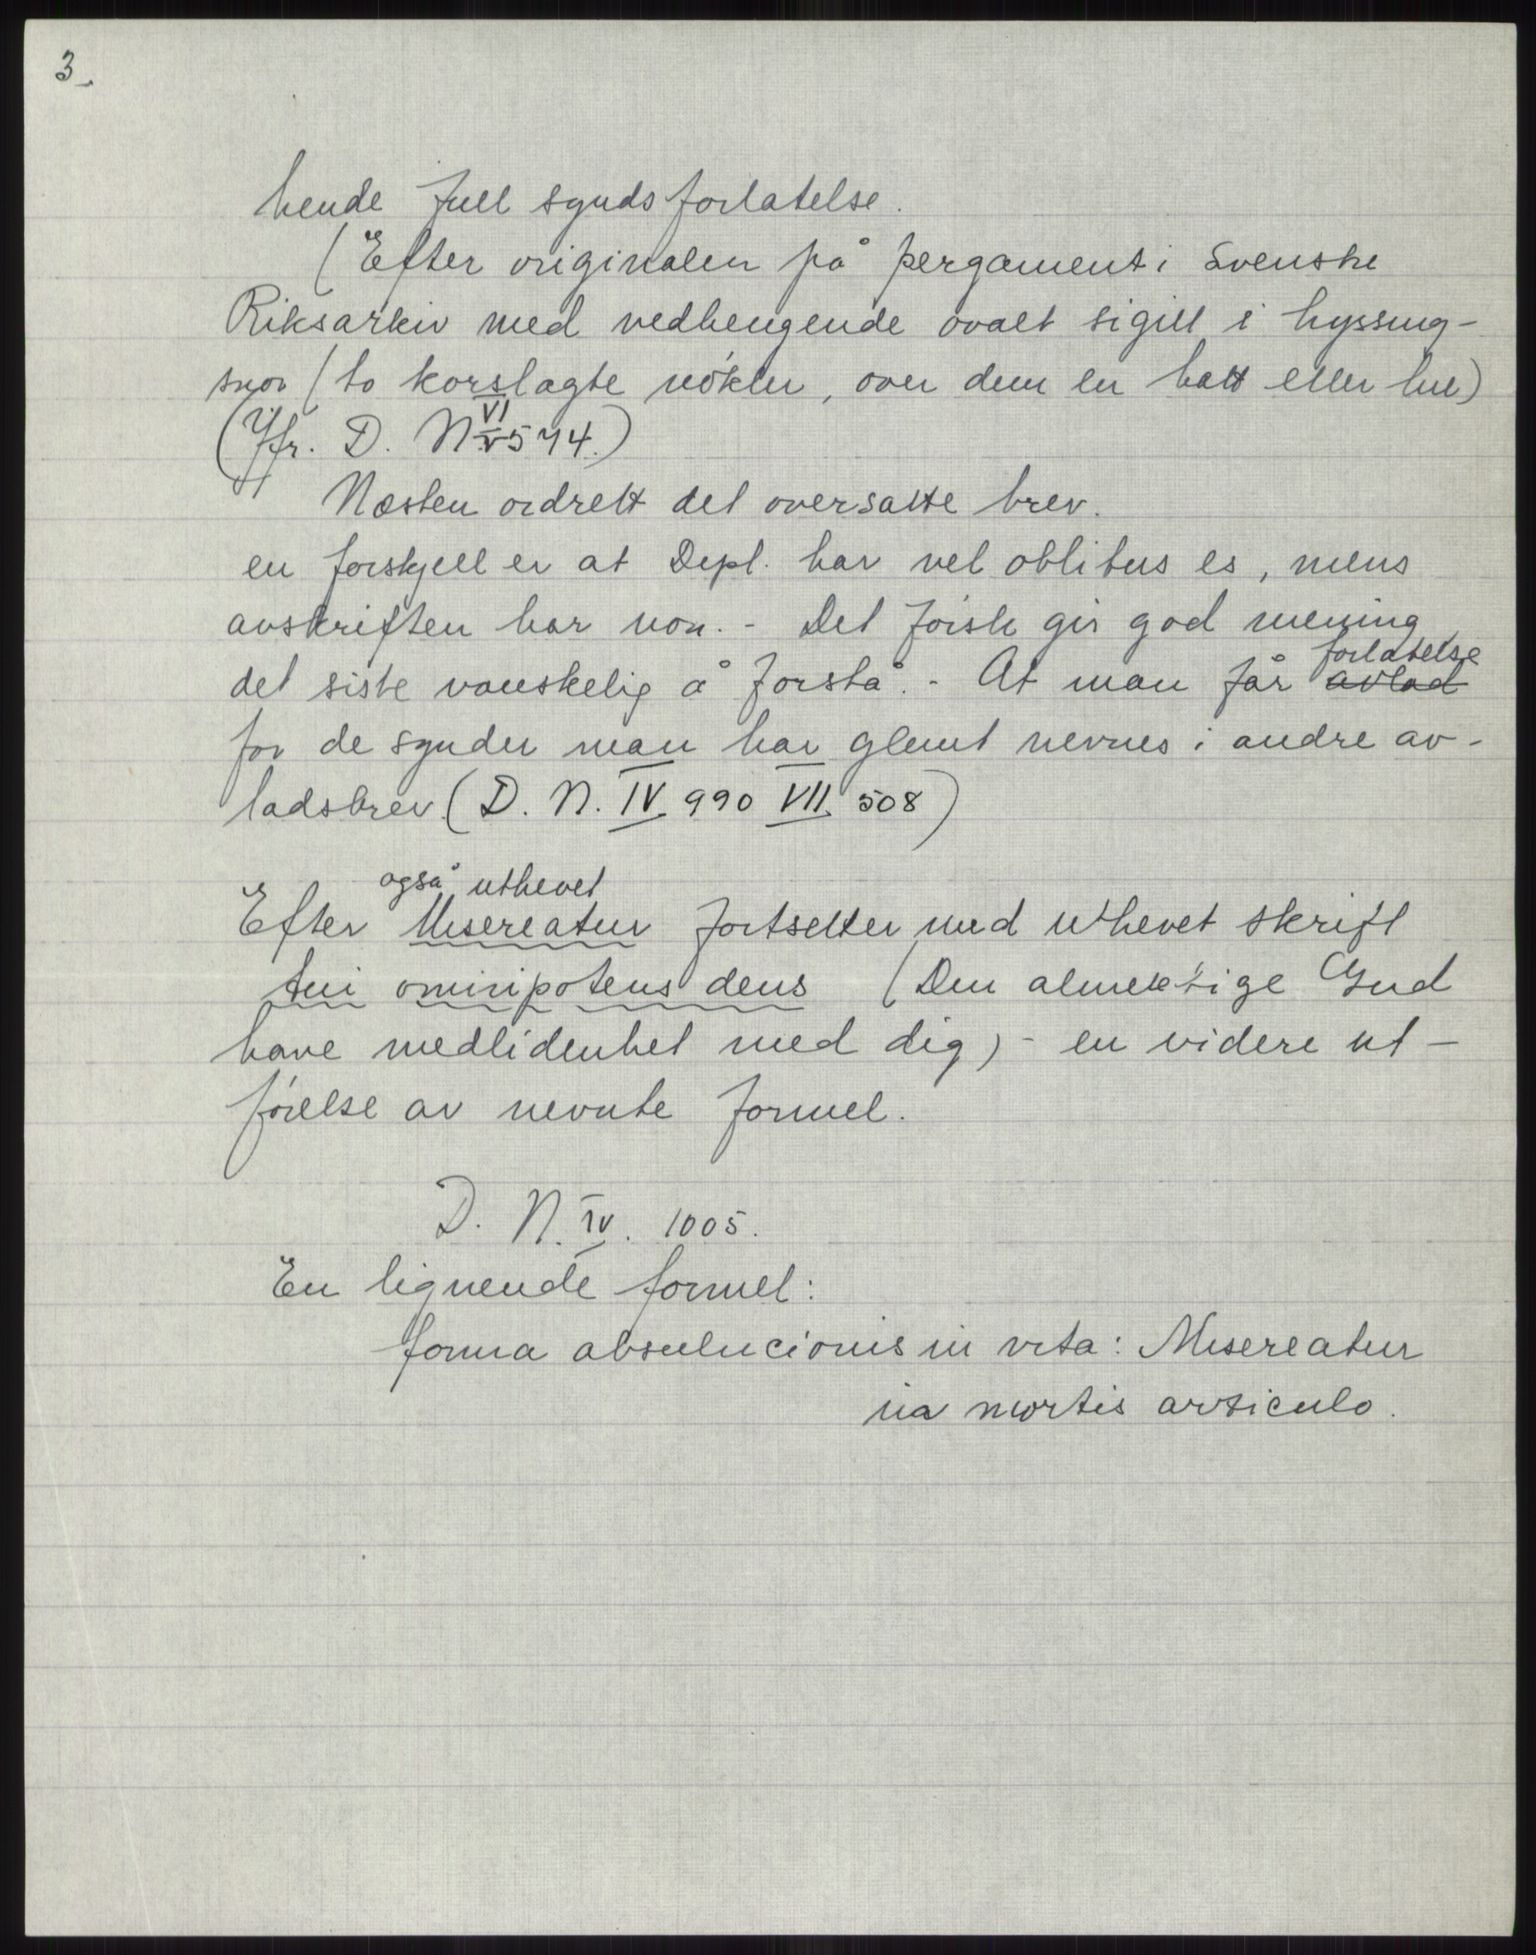 3
hende full syndsforlatelse.
(Efter originalen på pergament i Svenske
Riksarkiv med vedhengende ovalt sigill i hyssing-
snor (to korslagte nökler, over dem en hatt eller hue)
VI
(Jfr. D. N. V 574.)
Næsten ordrett det oversatte brev.
en forskjell er at Dipl. har vel oblitus es, mens
avskriften har non. - Det förste gir god mening
forlatelse
det siste vanskelig å forstå. - At man får avlad
for de synder man har glemt nevnes i andre av-
ladsbrev (D. N. IV 990 VII 508)
også uthevet
Efter Misereatur fortsetter med uthevet skrift
tui omnipotens deus (Den almektige Gud
have medlidenhet med dig) - en videre ut-
förelse av nevnte formel.
D. N. IV. 1005.
En lignende formel:
forma absolucionis in vita: Misereatur
in mortis articulo.